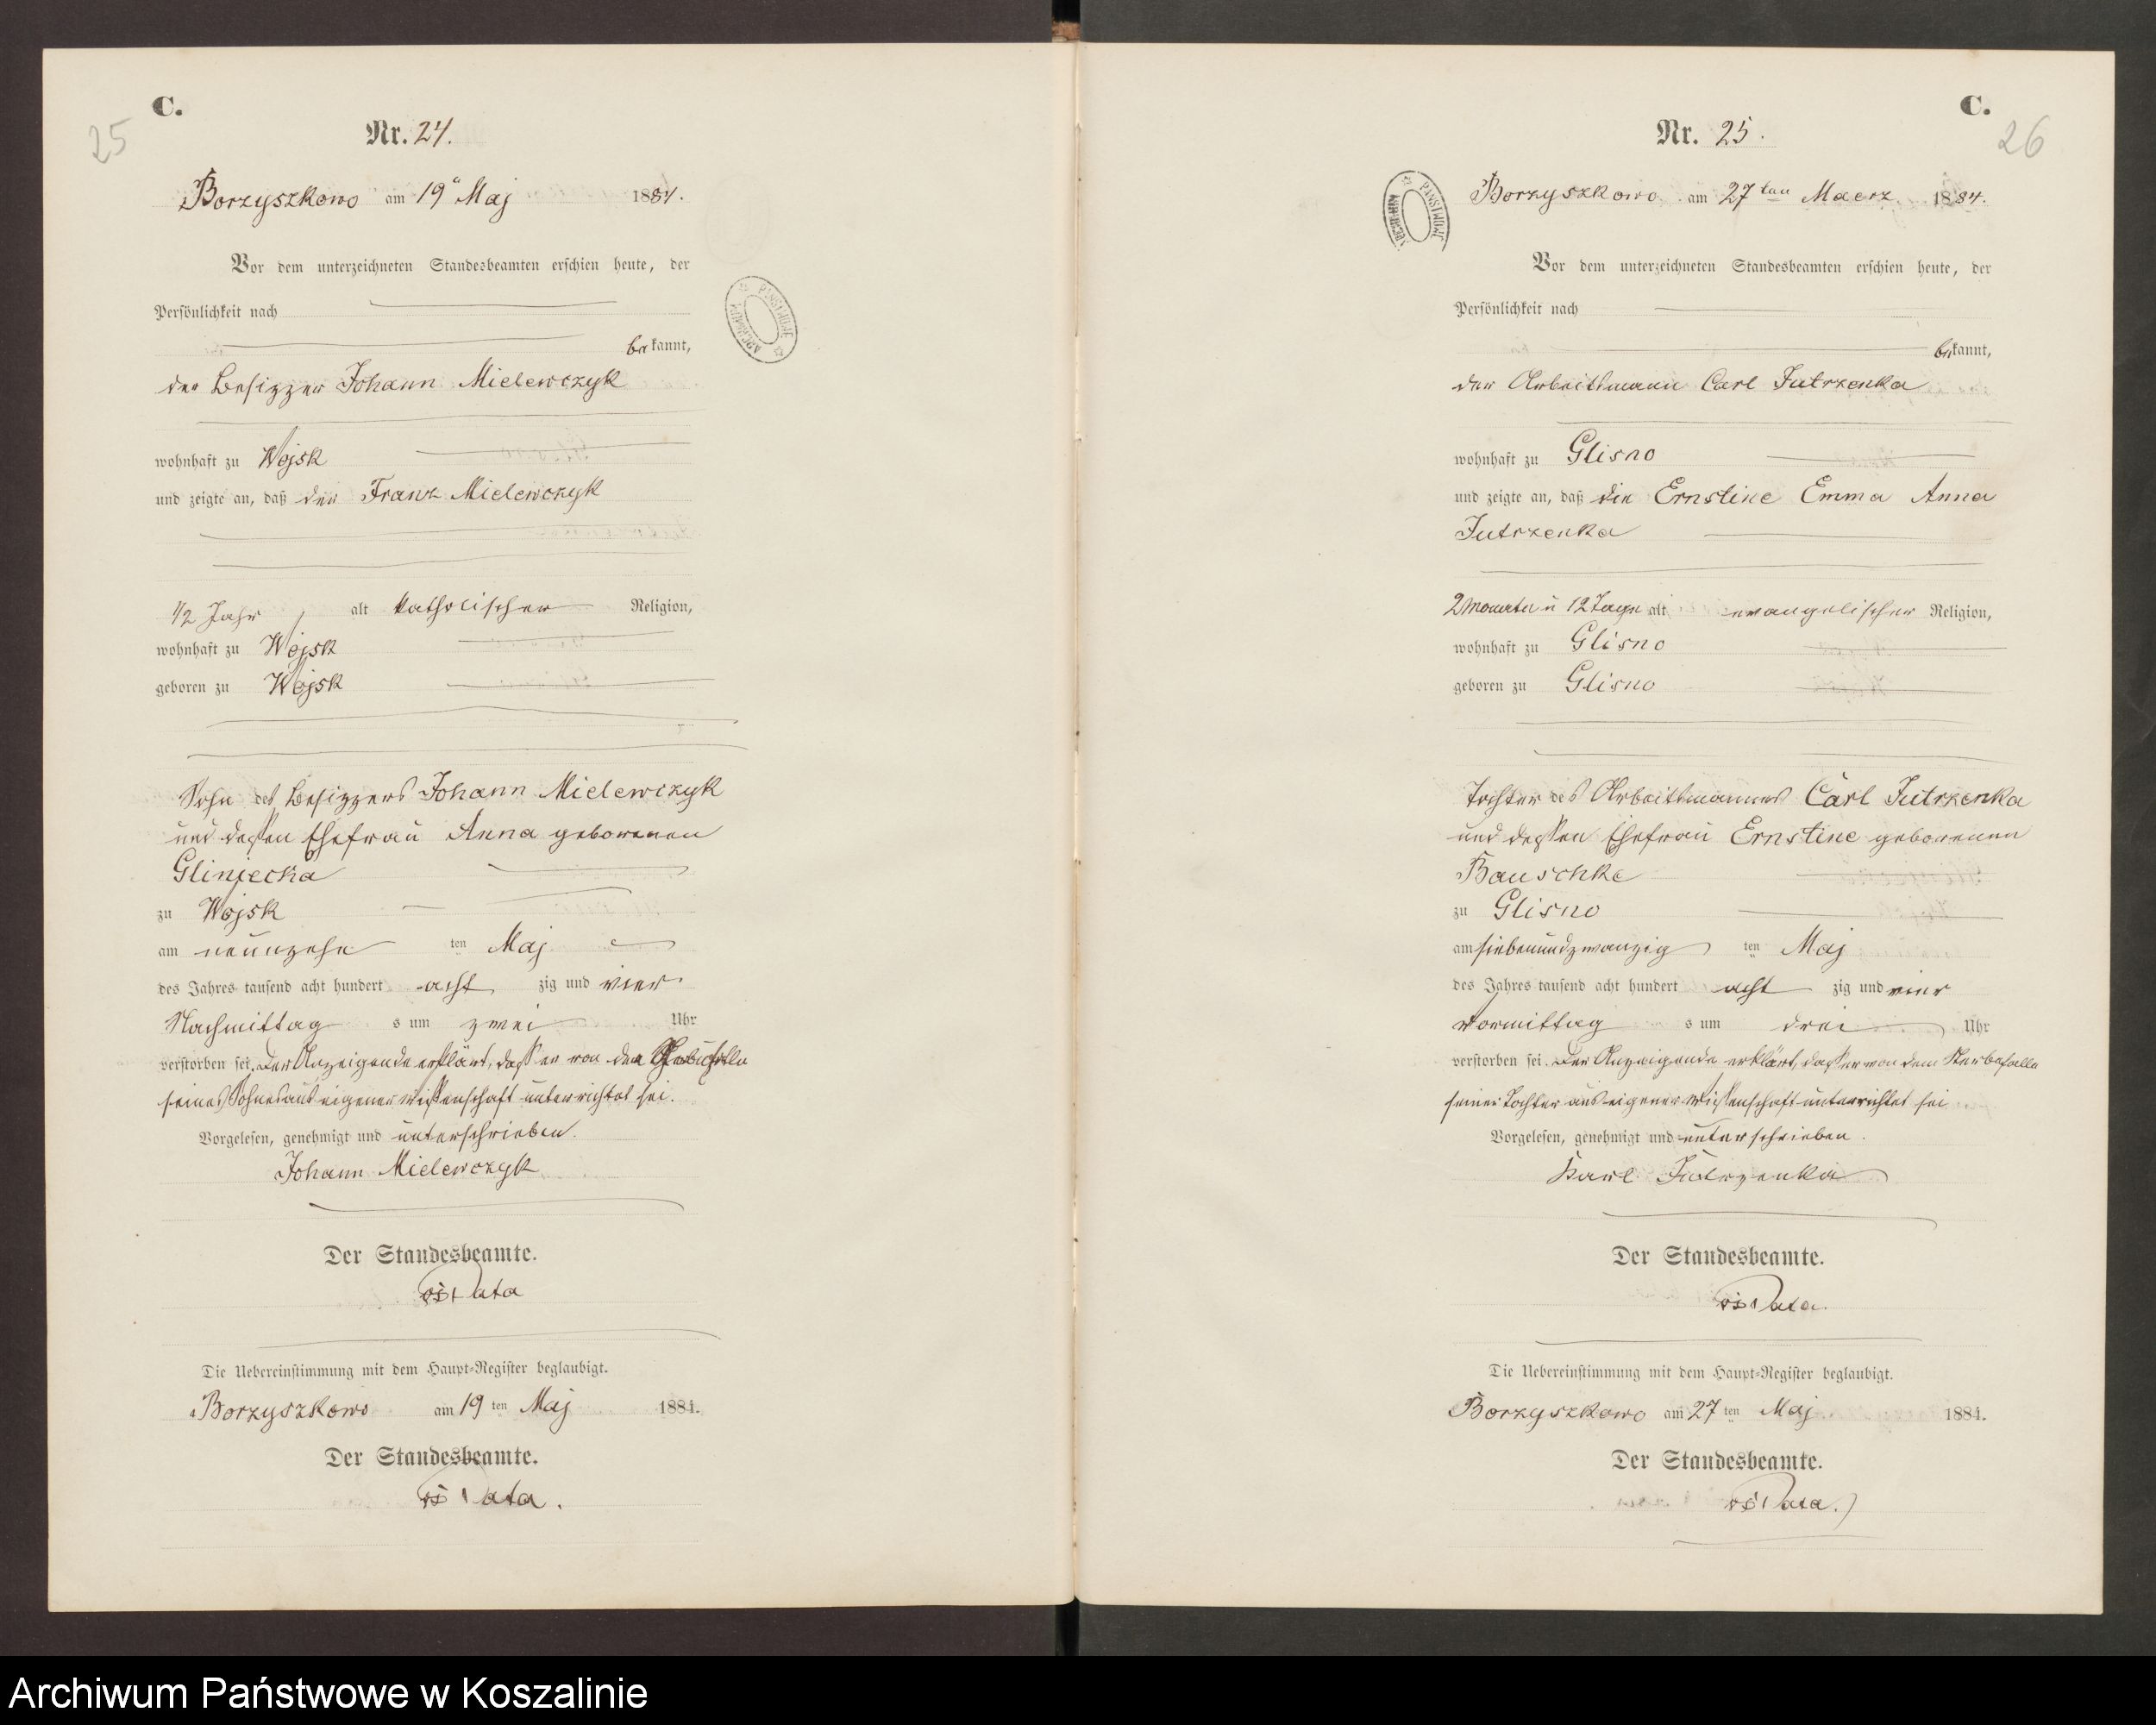 C.
25
Nr. 24.
Borzyszkowo am 19 Maj 1884.
Vor dem unterzeichneten Standesbeamten erschien heute, der
Persönlichkeit nach
bekannt,
der Besizzer Johann Mielewczyk
wohnhaft zu Wojsk
und zeigte an, daß der Franz Mielewczyk
1/2 Jahr alt katholischer Religion,
wohnhaft zu Wojsk
geboren zu Wojsk
Sohn des Besizzers Johann Mielewczyk
und dessen Ehefrau Anna geborenen
Glinjecka
zu Wojsk
am neunzehn ten Maj
des Jahres tausend acht hundert acht zig und vier
Nachmittag s um zwei Uhr
verstorben sei. Der Anzeigende erklärt, dass er von dem
seines Sohnes aus eigener Wissenschaft unterrichtet sei.
Vorgelesen, genehmigt und unterschrieben.
Johann Mielewczyk
Der Standesbeamte.
Die Uebereinstimmung mit dem Haupt-Register beglaubigt.
Borzyszkowo am 19 ten Maj 1884.
Der Standesbeamte.
C.
26
Nr. 25.
Borzyszkowo am 27 ten Maerz 1884.
Vor dem unterzeichneten Standesbeamten erschien heute, der
Persönlichkeit nach
bekannt,
der Arbeitsmann Carl Jutrzenka
wohnhaft zu Glisno
und zeigte an, daß die Ernstine Emma Anna
Jutrzenka
2 Monate u 12 Tage alt evangelischer Religion,
wohnhaft zu Glisno
geboren zu Glisno
Tochter des Arbeitsmannes Carl Jutrzenka
und dessen Ehefrau Ernstine geborenen
Bauschke
zu Glisno
am siebenundzwanzig ten Maj
des Jahres tausend acht hundert acht zig und vier
Vormittag s um drei Uhr
verstorben sei. Der Anzeigende erklärt, dass er von dem Sterbefalle
seiner Tochter aus eigener Wissenschaft unterrichtet sei
Vorgelesen, genehmigt und unterschrieben.
Karl Jutrzenka
Der Standesbeamte.
Die Uebereinstimmung mit dem Haupt-Register beglaubigt.
Borzyszkowo am 27 ten Maj 1884.
Der Standesbeamte.
Archiwum Państwowe w Koszalinie